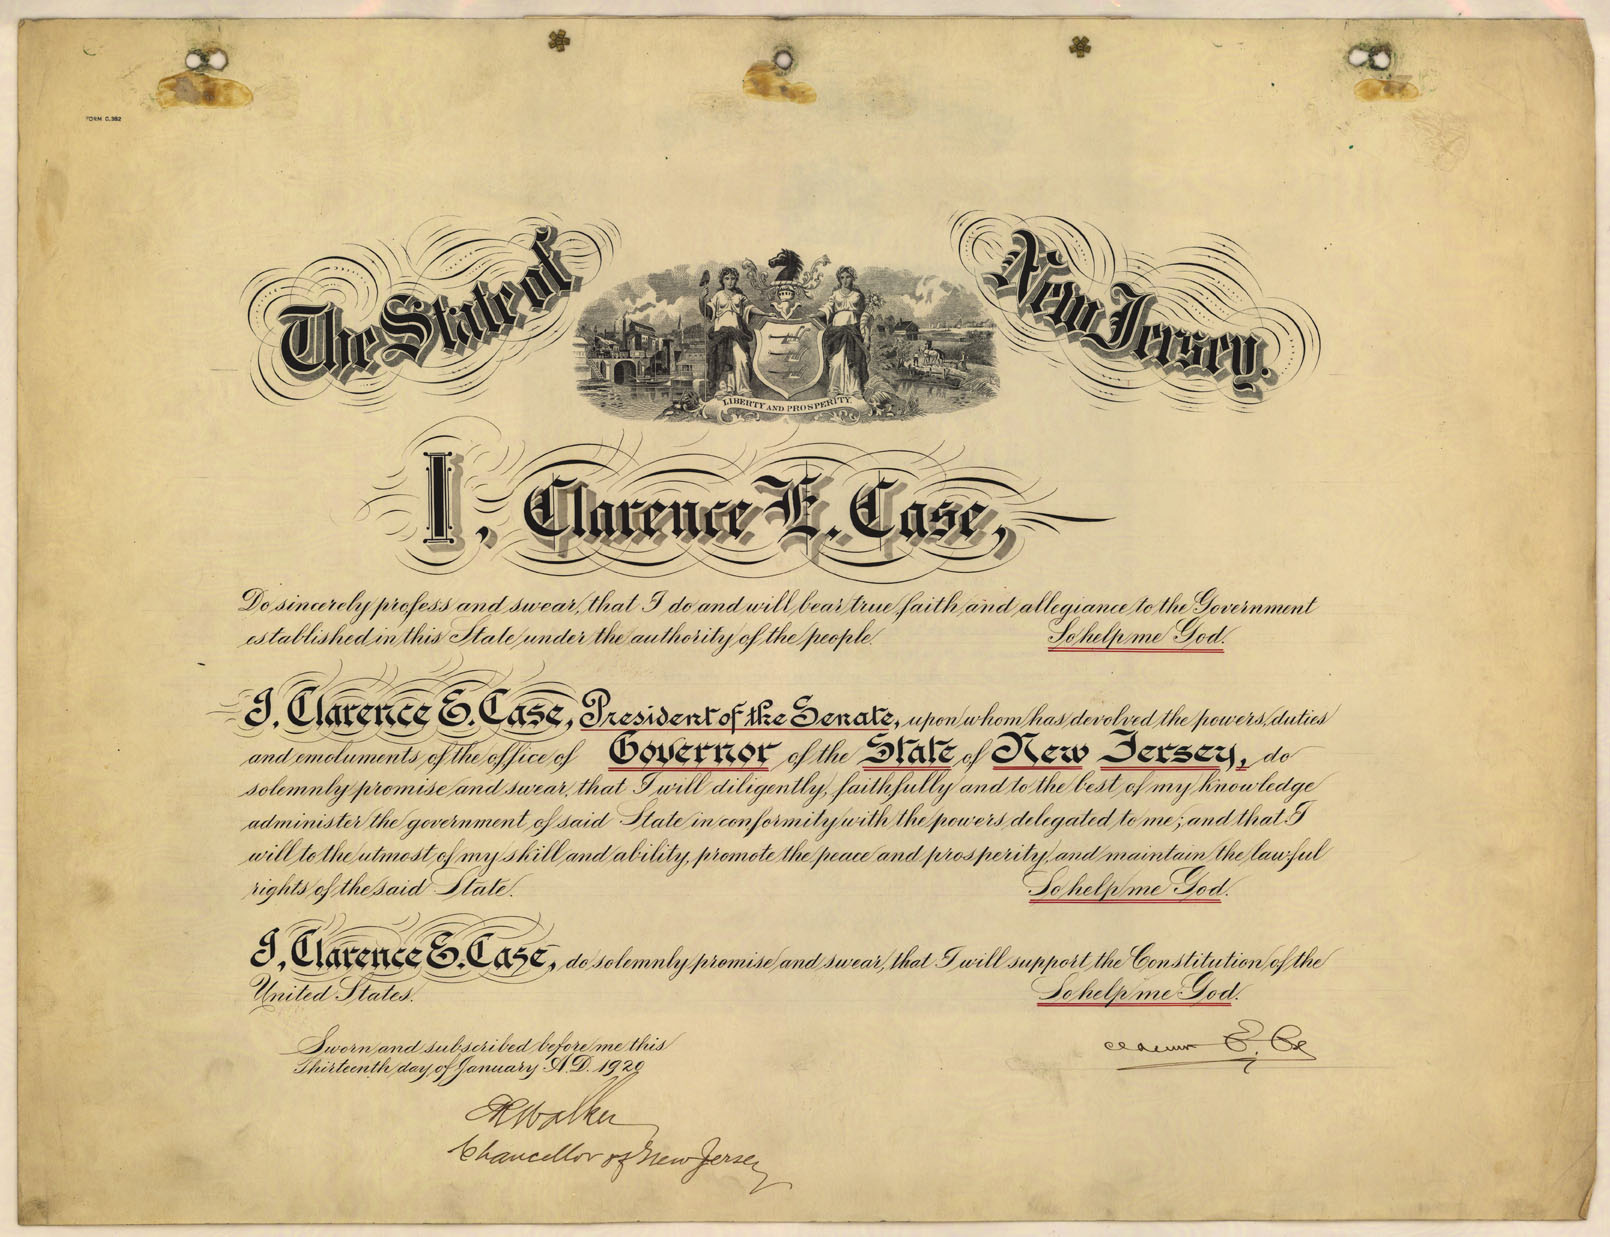 FORM C.382
The State of New Jersey.
LIBERTY AND PROSPERITY.
I, Clarence E. Case,
Do sincerely profess and swear, that I do and will bear true faith and allegiance to the Government
established in this State under the authority of the people. So help me God.
I, Clarence E. Case, President of the Senate, upon whom has devolved the powers, duties
and emoluments of the office of Governor of the State of New Jersey, do
solemnly promise and swear, that I will diligently, faithfully and to the best of my knowledge
administer the government of said State in conformity with the powers delegated to me; and that I
will to the utmost of my skill and ability, promote the peace and prosperity and maintain the lawful
rights of the said State. So help me God.
I, Clarence E. Case, do solemnly promise and swear, that I will support the Constitution of the
United States. So help me God.
Clarence E. Case
Sworn and subscribed before me this
Thirteenth day of January A.D. 1920
E R Walker
Chancellor of New Jersey